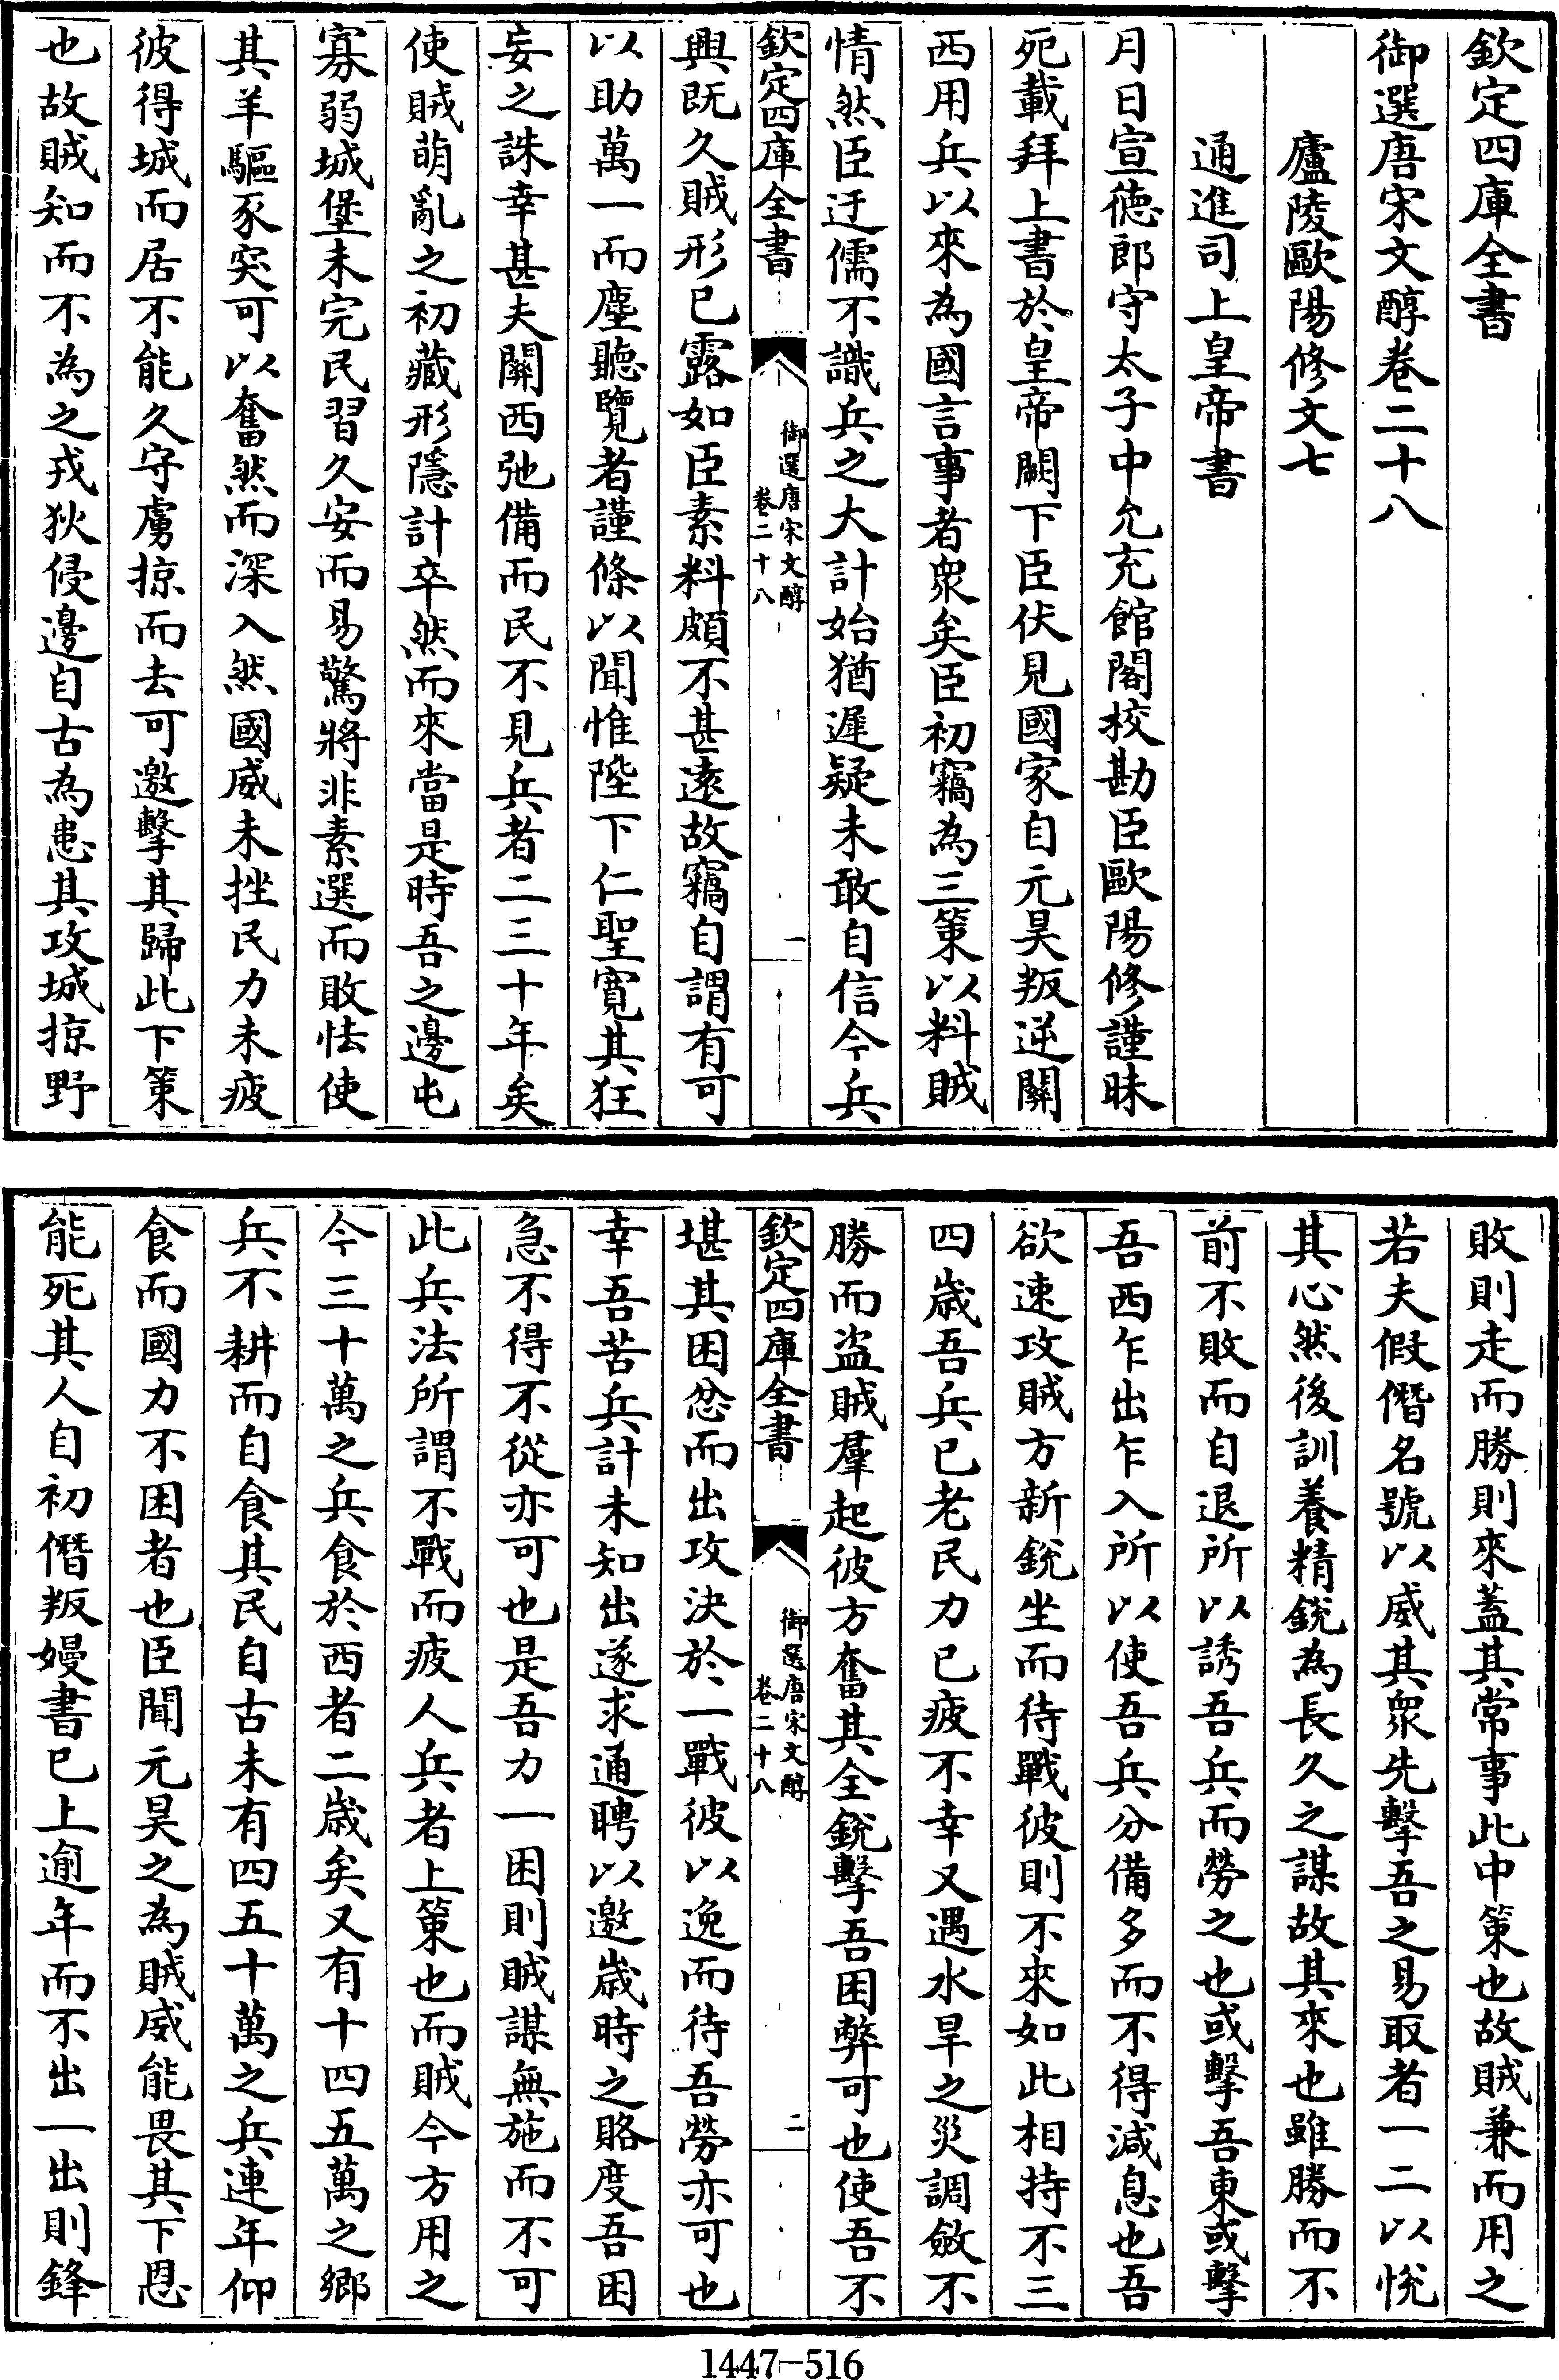 欽定四庫全書
御選唐宋文醇卷二十八
廬陵歐陽修文七
通進司上皇帝書
月日宣徳郎守太子中允充館閣校勘臣歐陽修謹昧
死載拜上書於皇帝闕下臣伏見國家自元昊叛逆關
西用兵以來為國言事者衆矣臣初竊為三策以料賊
情然臣迂儒不識兵之大計始猶遲疑未敢自信今兵
欽定四庫全書
御選唐宋文醇
卷二十八
一
興既久賊形已露如臣素料頗不甚逺故竊自謂有可
以助萬一而塵聽覽者謹條以聞惟陛下仁聖寛其狂
妄之誅幸甚夫關西弛備而民不見兵者二三十年矣
使賊萌亂之初藏形隱計卒然而來當是時吾之邊屯
寡弱城堡未完民習久安而易驚將非素選而敗怯使
其羊驅豕突可以奮然而深入然國威未挫民力未疲
彼得城而居不能久守虜掠而去可邀擊其歸此下策
也故賊知而不為之戎狄侵邊自古為患其攻城掠野
敗則走而勝則來蓋其常事此中策也故賊兼而用之
若夫假僭名號以威其衆先擊吾之易取者一二以悅
其心然後訓養精銳為長久之謀故其來也雖勝而不
前不敗而自退所以誘吾兵而勞之也或擊吾東或擊
吾西乍出乍入所以使吾兵分備多而不得減息也吾
欲速攻賊方新銳坐而待戰彼則不來如此相持不三
四歳吾兵已老民力已疲不幸又遇水旱之災調斂不
勝而盜賊羣起彼方奮其全銳擊吾困弊可也使吾不
欽定四庫全書
御選唐宋文醇
卷二十八
二
堪其困忿而出攻決於一戰彼以逸而待吾勞亦可也
幸吾苦兵計未知出遂求通聘以邀歳時之賂度吾困
急不得不從亦可也是吾力一困則賊謀無施而不可
此兵法所謂不戰而疲人兵者上策也而賊今方用之
今三十萬之兵食於西者二歳矣又有十四五萬之鄉
兵不耕而自食其民自古未有四五十萬之兵連年仰
食而國力不困者也臣聞元昊之為賊威能畏其下恩
能死其人自初僭叛嫚書已上逾年而不出一出則鋒
1447-516